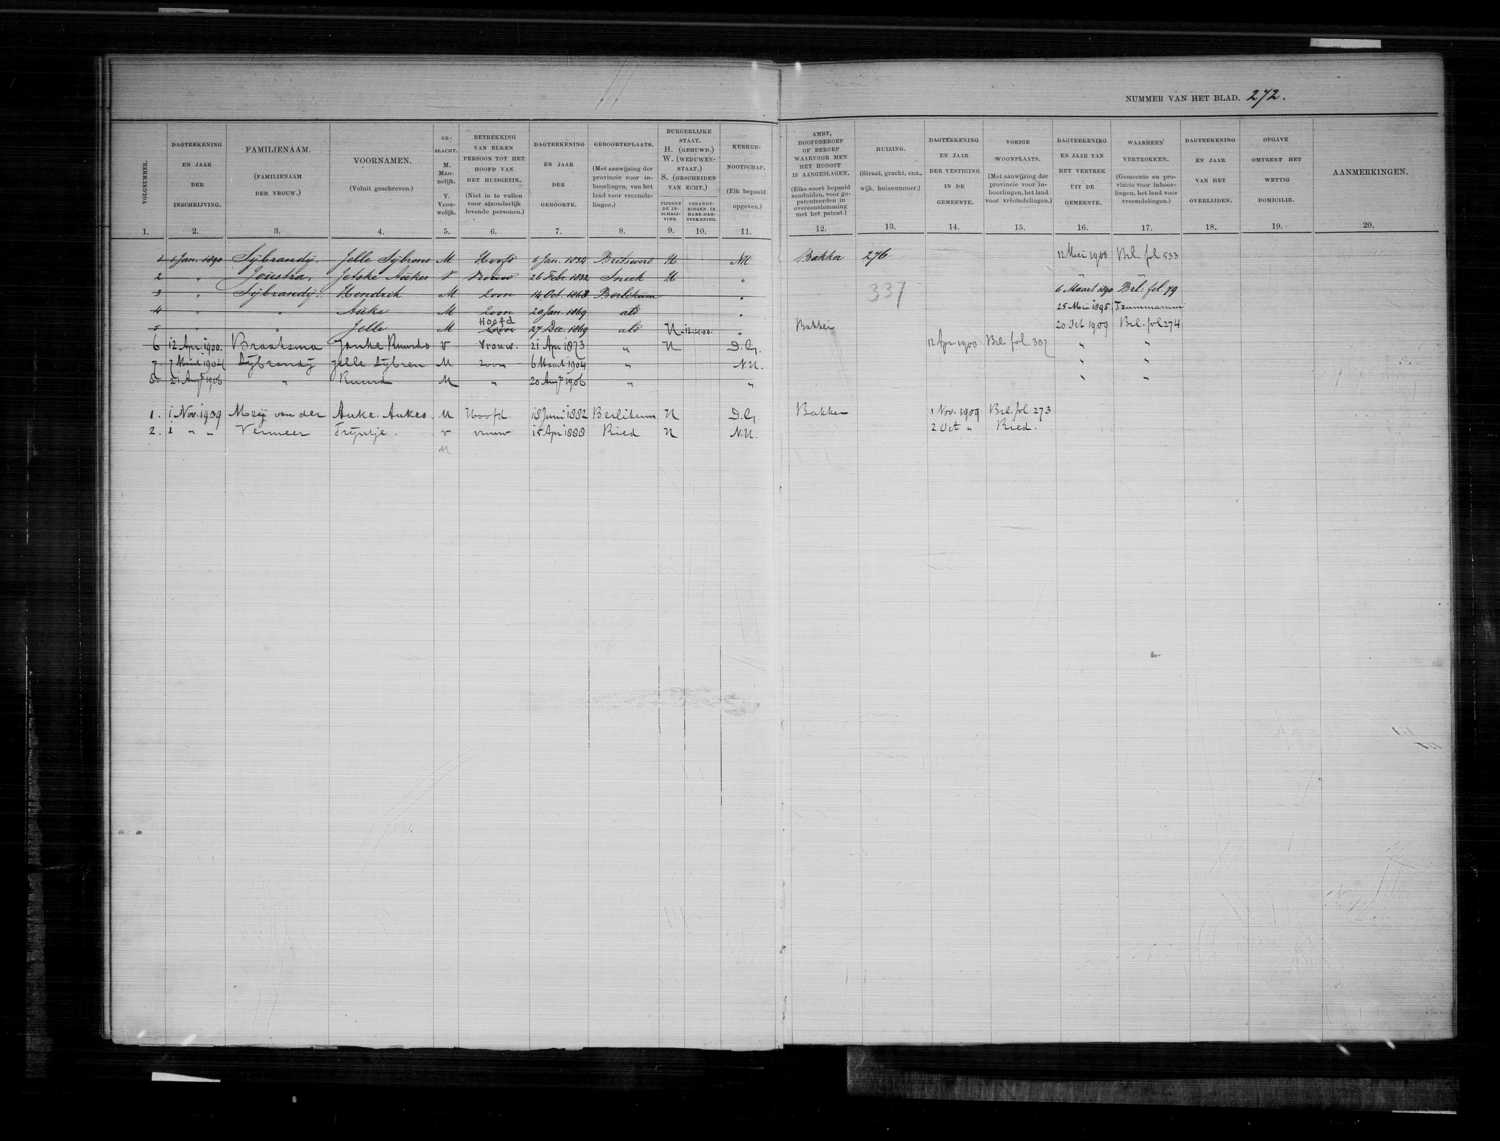 NUMMER VAN HET BLAD. 272.
VOLGNUMMER.
DAGTEEKENING EN JAAR DER INSCHRIJVING.
FAMILIENAAM. (FAMILIENAAM DER VROUW.)
VOORNAMEN. (Voluit geschreven.)
GESLACHT. M. Mannelijk. V. Vrouwelijk.
BETREKKING VAN ELKEN PERSOON TOT HET HOOFD VAN HET HUISGEZIN. (Niet in te vullen voor afzonderlijk levende personen.)
DAGTEEKENING EN JAAR DER GEBOORTE.
GEBOORTEPLAATS. (Met aanwijzing der provincie voor inboorlingen, van het land voor vreemdelingen.)
BURGERLIJKE STAAT. H. (GEHUWD.) W. (WEDUWENSTAAT.) S. (GESCHEIDEN VAN ECHT.)
TIJDENS DE INSCHRIJVING.
VERANDERINGEN IN HARE DAGTEEKENING.
KERKGENOOTSCHAP. (Elk bepaald opgeven.)
AMBT, HOOFDBEROEP OF BEROEP WAARVOOR MEN HET HOOGST IS AANGESLAGEN.
HUIZING. (Straat, gracht, enz., wijk, huisnummer.)
DAGTEEKENING EN JAAR DER VESTIGING IN DE GEMEENTE.
VORIGE WOONPLAATS. (Met aanwijzing der provincie voor inboorlingen, het land voor vreemdelingen.)
DAGTEEKENING EN JAAR VAN HET VERTREK UIT DE GEMEENTE.
WAARHEEN VERTROKKEN. (Gemeente en provincie voor inboorlingen, het land voor vreemdelingen.)
DAGTEEKENING EN JAAR VAN HET OVERLIJDEN.
OPGAVE OMTRENT HET WETTIG DOMICILIE.
AANMERKINGEN.
1. 2. 3. 4. 5. 6. 7. 8. 9. 10. 11. 12. 13. 14. 15. 16. 17. 18. 19. 20.
1 1 Jan. 1890 Sijbrandij. Jelle Sijbrens M Hoofd Jan. H NH Bakker 276 12 Mei 1900 Brl. fol 533
2 " Joustra, Jetske Aukes V Vrouw 26 Febr. 1832 Sneek H " " "
3 " Sijbrandij. Hendrik M Zoon 14 Oct. 1863 Berlikum " 337 6 Maart 1890 Brl. fol. 79
4 " " Auke M Zoon 20 Jan. 1869 als " 25 Mei 1895 Franeker
5 " " Jelle M Hoofd Zoon 27 Dec. 1869 als H " Bakker 20 Oct 1909 Brl. fol 274
6 12 Apr. 1900. Braaksma Janke Ruurds V Vrouw. 21 Apr 1873 " H D.G. 12 Apr 1900 Brl fol 307 " "
7 7 Maart 1904 Sijbrandij Jelle Sijbren M zoon 6 Maart 1904 " N.H. " "
8 21 Aug. 1906 " Ruurd M " 20 Aug. 1906 " " " "
1. 1 Nov. 1909 Meij van der Auke Aukes M Hoofd 18 Juni 1882 Berlikum H D.G. Bakker 1 Nov. 1909 Brl. fol. 273
2. 2 " " Vermeer Trijntje. V vrouw 15 Apr 1888 Ried H N.H. 2 Oct " Ried.
M